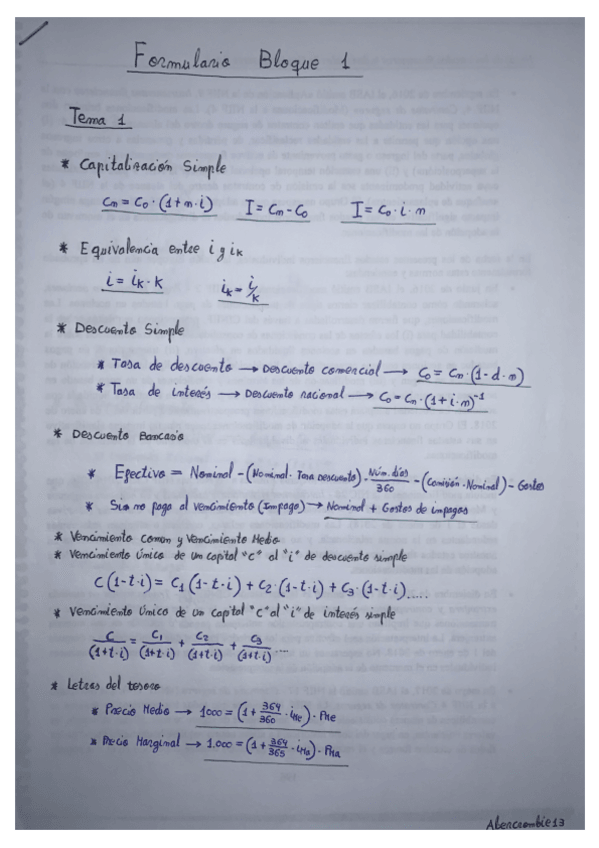 Formulario Bloque 1
Tema 1
* Capitalización Simple
Cn = C0 · (1+n·i) I = Cn - C0 I = C0 · i · n
* Equivalencia entre i y ik
i = ik · k ik = i/k
* Descuento Simple
* Tasa de descuento → Descuento comercial → C0 = Cn · (1 - d · n)
* Tasa de interés → Descuento racional → C0 = Cn · (1 + i · n)⁻¹
* Descuento Bancario
* Efectivo = Nominal - (Nominal · Tasa Descuento) · Núm. días/360 - (Comisión · Nominal) - Gastos
* Si no pago al vencimiento (Impago) → Nominal + Gastos de impagos
* Vencimiento Comun y Vencimiento Medio
* Vencimiento Único de un capital "C" al "i" de descuento simple
C(1-t·i) = C1 (1-t·i) + C2 · (1-t·i) + C3 · (1-t·i).....
* Vencimiento Único de un capital "C" al "i" de interés simple
C/(1+t·i) = C1/(1+t·i) + C2/(1+t·i) + C3/(1+t·i) ....
* Letras del tesoro
* Precio Medio → 1000 = (1 + 364/360 · iMe) · PMe
* Precio Marginal → 1.000 = (1 + 364/365 · iMa) · PMa
Abercrombie13